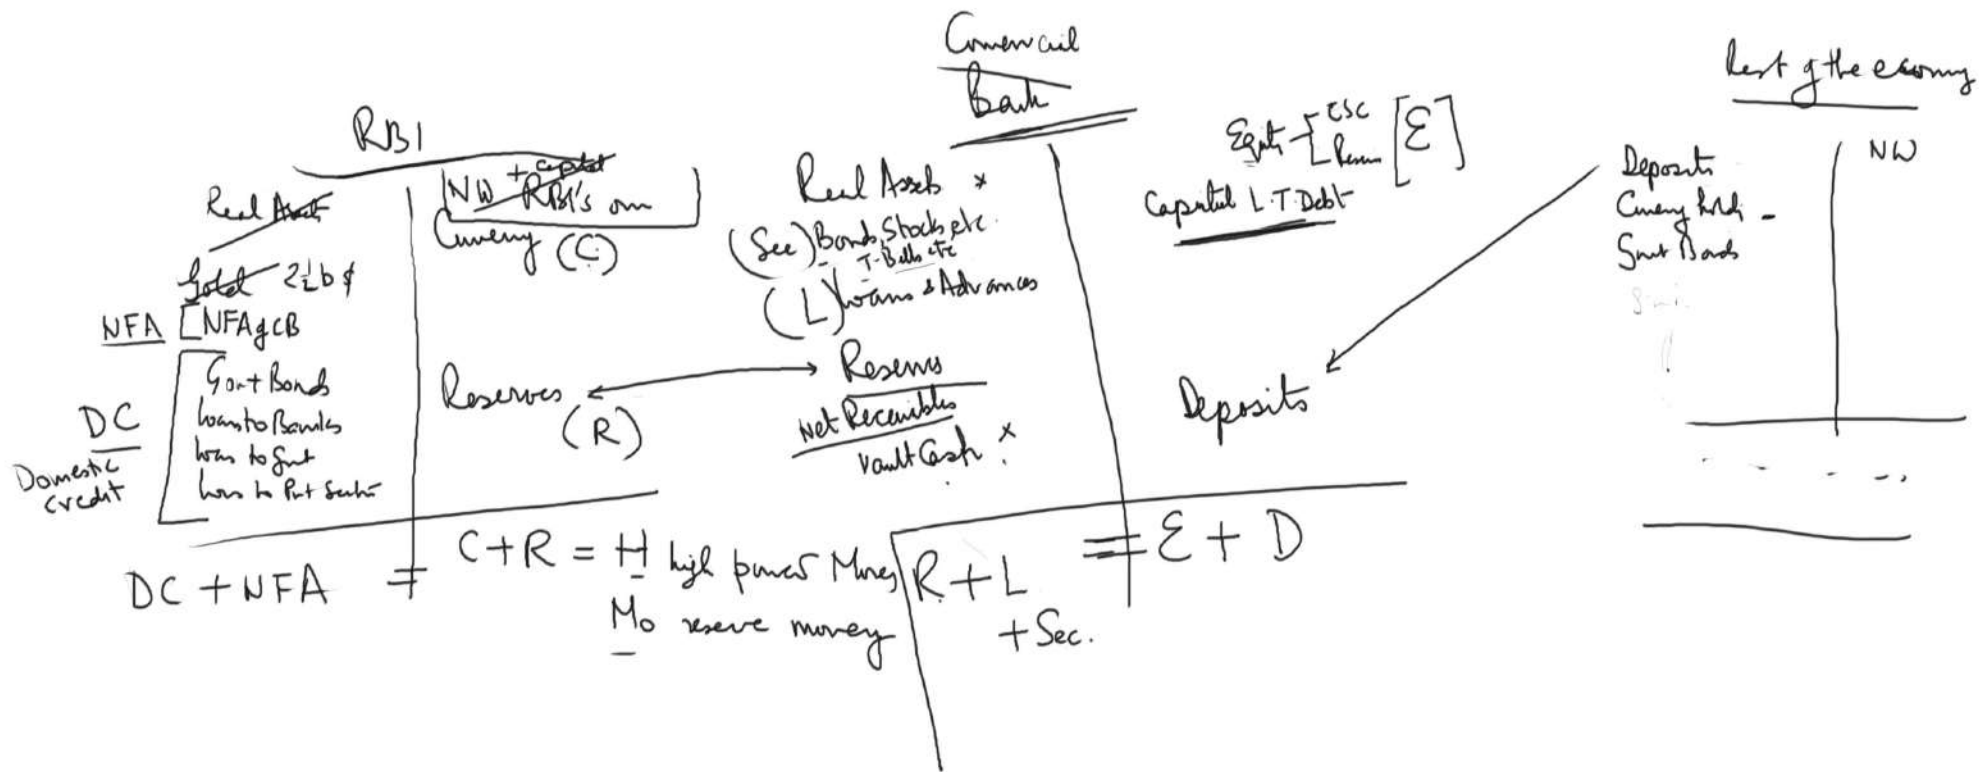 RBI
Real Assets
Gold 2½ b $
NFA [NFA of CB
Govt Bonds
Loans to Banks
loans to Govt
loans to Pvt Sector
DC
Domestic
credit
DC + NFA =
NW + capital
RBI's own
Currency (C)
Reserves
(R)
C + R = H high power Money
Mo reserve money
Commercail
Bank
Real Assets ×
(Sec) Bonds, Stocks etc.
T-Bills etc
(L) Loans & Advances
Reserves
Net Receivables
Vault Cash ×
R + L
+ Sec.
Equity [ESC [E]
Reserves
Capital L.T. Debt
Deposits
= E + D
Rest of the economy
Deposits
Currency holdi -
Govt Bonds
NW